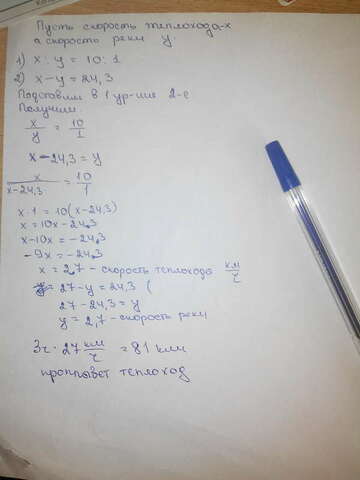 Пусть скорость теплохода-х
а скорость реки у.
1) х : у = 10 : 1
2) х-у = 24,3
Подставим в 1 ур-ние 2-е
Получим:
х/у = 10/1
х - 24,3 = у
х/х-24,3 = 10/1
х·1 = 10(х-24,3)
х = 10х - 24,3
х-10х = -24,3
-9х = -24,3
х = 2,7 - скорость теплохода км/ч
27-у = 24,3 (
27-24,3 = у
у = 2,7 - скорость реки
3ч · 27 км/ч = 81 км
проплывет теплоход